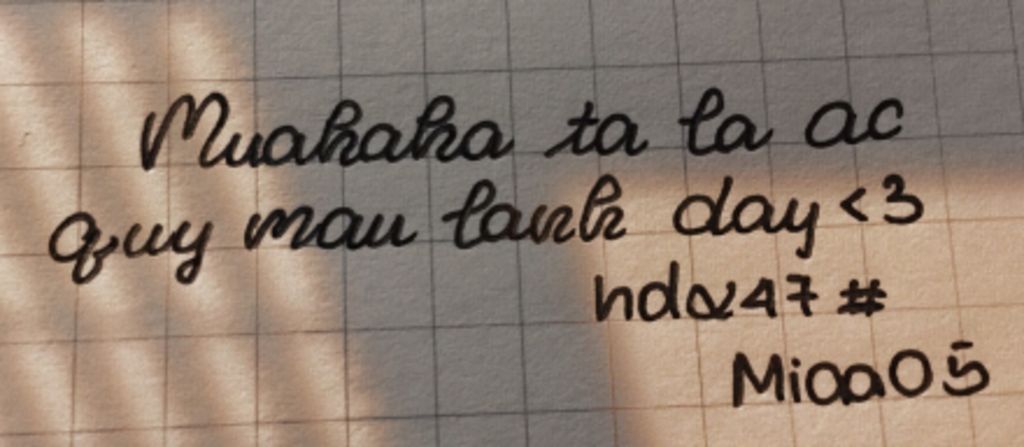 Muahaha ta la ac
quy mau lanh day <3
hdα47 #
Miaa05